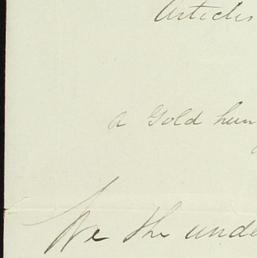 Articles
a Gold hun
We the unde